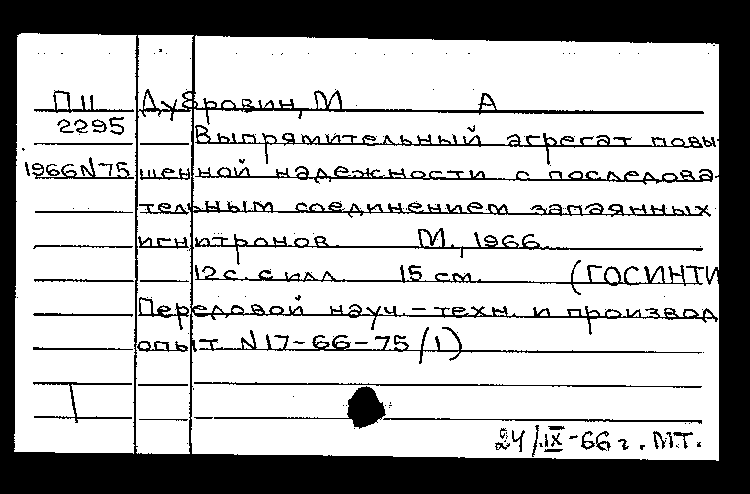 П11 Дубровин, М А
2295 Выпрямительный агрегат повы-
1966N75 шенной надежности с последова-
тельным соединением запаянных
игнитронов. М., 1966.
12 с. с илл. 15 см. (ГОСИНТИ
Передовой науч.-техн. и производ.
опыт N17-66-75/1)
24/IX-66 г. М.Т.